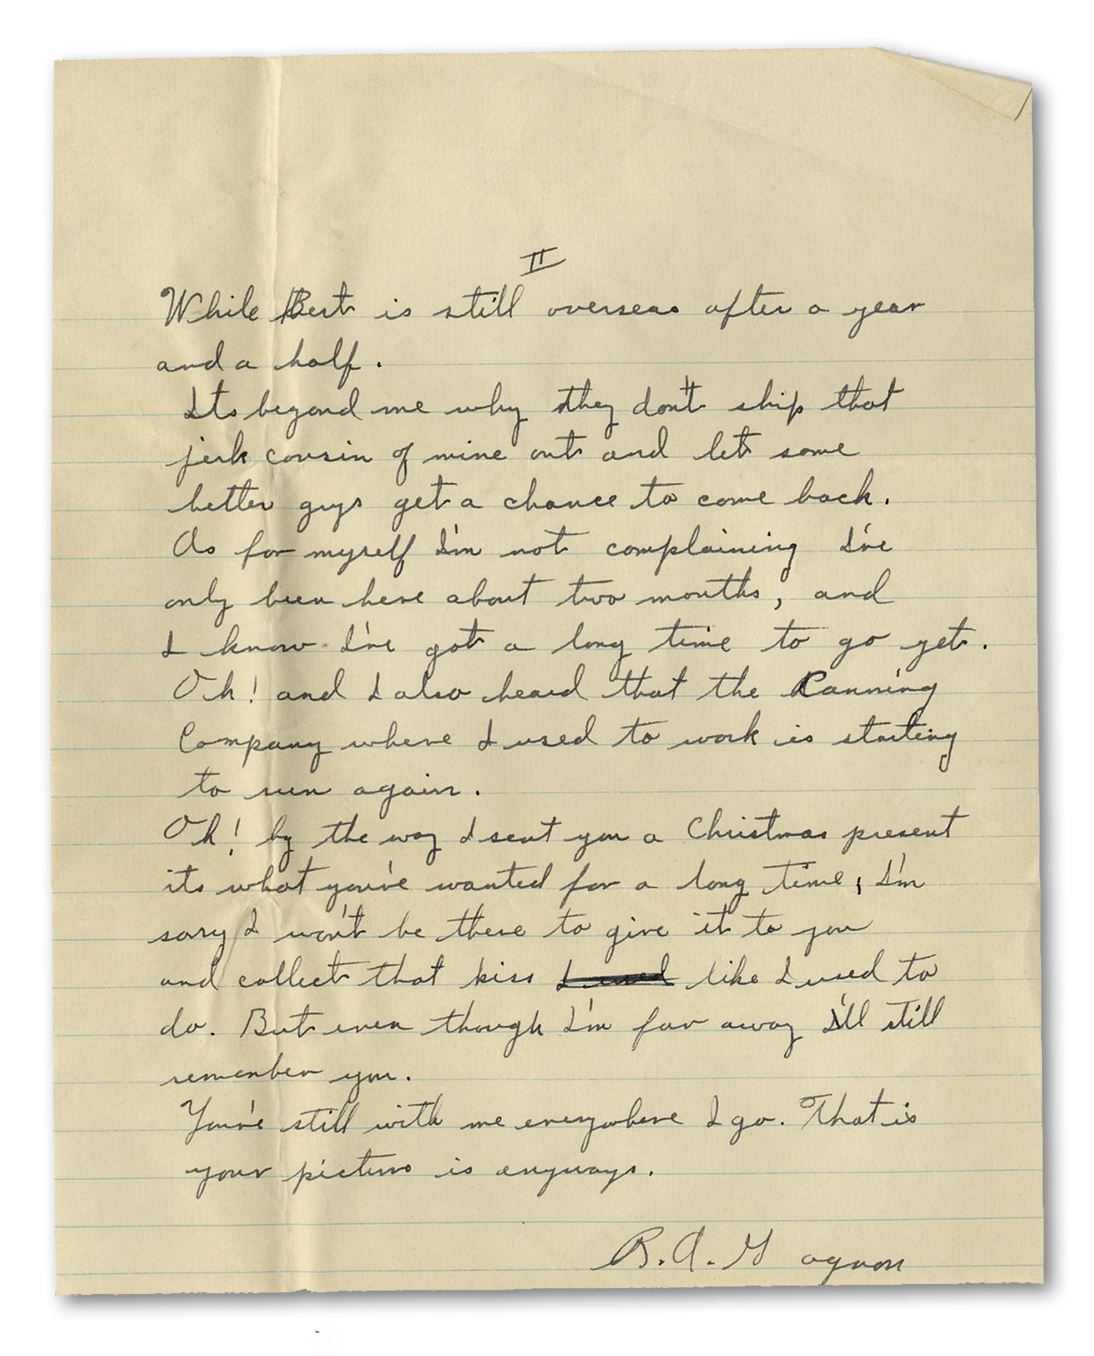 II
While Bert is still overseas after a year
and a half.
Its beyond me why they don't ship that
jerk cousin of mine out and let some
better guys get a chance to come back.
As for myself I'm not complaining I've
only been here about two months, and
I know I've got a long time to go yet.
Oh! and I also heard that the Canning
Company where I used to work is starting
to run again.
Oh! by the way I sent you a Christmas present
its what you've wanted for a long time, I'm
sory I won't be there to give it to you
and collect that kiss I used like I used to
do. But even though I'm far away I'll still
remember you.
You're still with me everywhere I go. That is
your picture is anyways.
R. A. Gagnon